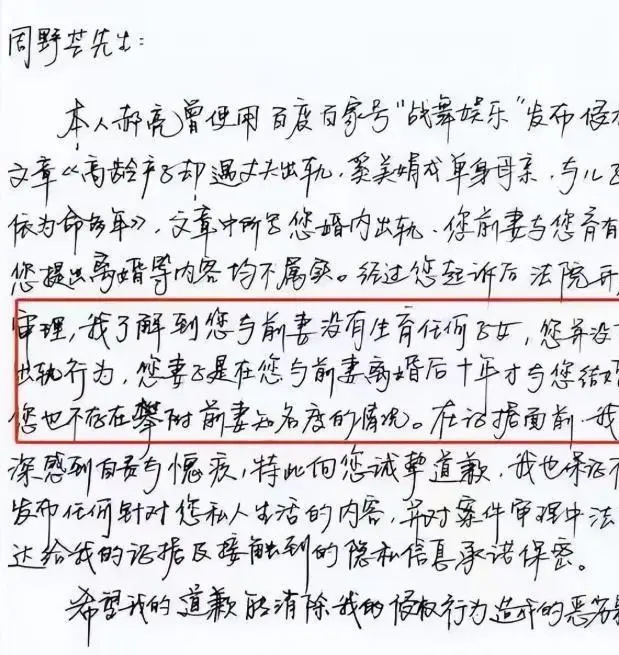 周野芒先生:
本人郝亮曾使用百度百家号“战舞娱乐”发布侵权
文章《高龄产子却遇丈夫出轨,奚美娟成单身母亲,与儿子
依为命多年》,文章中所写您婚内出轨、您前妻与您育有
您提出离婚等内容均不属实。经过您起诉后法院开
审理,我了解到您与前妻没有生育任何子女,您并没
出轨行为,您妻子是在您与前妻离婚后十年才与您结婚
您也不存在攀附前妻知名度的情况。在证据面前,我
深感到自责与愧疚,特此向您诚挚道歉,我也保证不
发布任何针对您私人生活的内容,并对案件审理中法
达给我的证据及接触到的隐私信息承诺保密。
希望我的道歉能消除我的侵权行为造成的恶劣